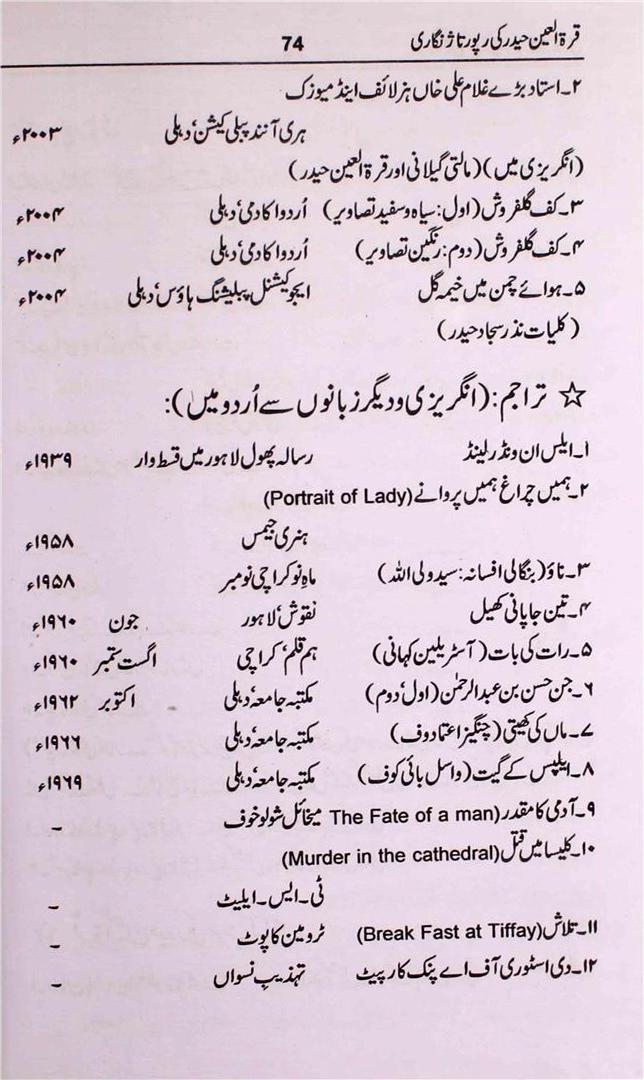 قرۃ العین حیدر کی رپورتاژ نگاری 74
۲۔ استاد بڑے غلام علی خاں ہز لائف اینڈ میوزک
ہری آنند پبلی کیشن، دہلی ۲۰۰۳ء
(انگریزی میں) (مالتی گیلانی اور قرۃ العین حیدر)
۳۔ کف گلفروش (اول: سیاہ و سفید تصاویر) اُردو اکادمی، دہلی ۲۰۰۴ء
۴۔ کف گلفروش (دوم: رنگین تصاویر) اُردو اکادمی، دہلی ۲۰۰۴ء
۵۔ ہوائے چمن میں خیمہ گل ایجوکیشنل پبلیشنگ ہاؤس، دہلی ۲۰۰۴ء
(کلیات نذر سجاد حیدر)
☆ تراجم: (انگریزی و دیگر زبانوں سے اُردو میں):
۱۔ ایلس ان ونڈر لینڈ رسالہ پھول لاہور میں قسط وار ۱۹۳۹ء
۲۔ ہمیں چراغ ہمیں پروانے (Portrait of Lady)
ہنری جیمس ۱۹۵۸ء
۳۔ ناؤ (بنگالی افسانہ: سید ولی اللہ) ماہِ نو کراچی نومبر ۱۹۵۸ء
۴۔ تین جاپانی کھیل نقوش، لاہور جون ۱۹۶۰ء
۵۔ رات کی بات (آسٹریلین کہانی) ہم قلم، کراچی اگست ستمبر ۱۹۶۰ء
۶۔ جن حسن بن عبدالرحمٰن (اول، دوم) مکتبہ جامعہ، دہلی اکتوبر ۱۹۶۲ء
۷۔ ماں کی کھیتی (چنگیز اعتمادوف) مکتبہ جامعہ، دہلی ۱۹۶۶ء
۸۔ ایلپس کے گیت (واسل بائی کوف) مکتبہ جامعہ، دہلی ۱۹۶۹ء
۹۔ آدمی کا مقدر (The Fate of a man) میخائل شولوخوف _
۱۰۔ کلیسا میں قتل (Murder in the cathedral)
ٹی۔ ایس۔ ایلیٹ _
۱۱۔ تلاش (Break Fast at Tiffay) ٹرومین کاپوٹ _
۱۲۔ دی اسٹوری آف اے پنک کارپیٹ تہذیب نسواں _